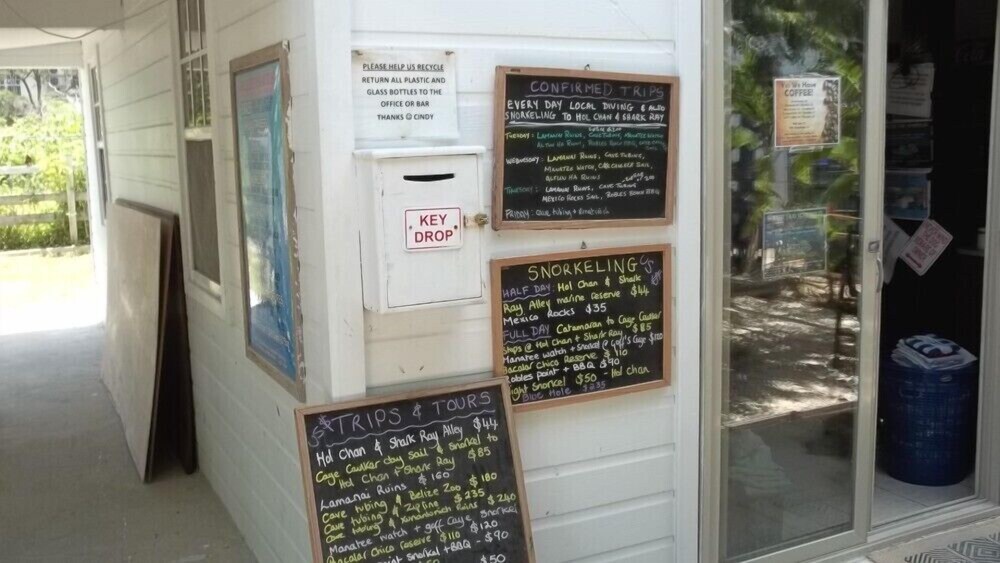 PLEASE HELP US RECYCLE
RETURN ALL PLASTIC AND
GLASS BOTTLES TO THE
OFFICE OR BAR
THANKS CINDY
KEY
DROP
CONFIRMED TRIPS
EVERY DAY LOCAL DIVING & ALSO
SNORKELING TO HOL CHAN & SHARK RAY
TUESDAY: LAMANAI RUINS, CAVE TUBING, MANATEE WATCH
WEDNESDAY: LAMANAI RUINS, CAVE TUBING,
MANATEE WATCH, SAIL,
ALTUN HA RUINS
THURSDAY: LAMANAI RUINS, CAVE TUBING
MEXICO ROCKS SAIL, ROBLES BBQ
FRIDAY: CAVE TUBING +
SNORKELING
HALF DAY: Hol Chan & Shark
Ray Alley marine reserve $44
Mexico Rocks $35
FULL DAY Catamaran to Caye Caulker
stops @ Hol Chan & Shark Ray $85
Manatee watch + Snorkel @ Goff's Caye
Bacalar Chico Reserve $110
Robles point + BBQ $90
Night Snorkel $50 - Hol Chan
Blue Hole $235
TRIPS & TOURS
Hol Chan & Shark Ray Alley $44
Caye Caulker day sail & snorkel to
Hol Chan & Shark Ray $85
Lamanai Ruins $160
Cave tubing & Belize Zoo $180
Cave tubing & Zipline $235
Cave tubing & Xunantunich Ruins $240
Manatee watch + goff Caye Snorkel
$120
Bacalar Chico reserve $110
point Snorkel + BBQ - $90
$50
We Have
COFFEE!